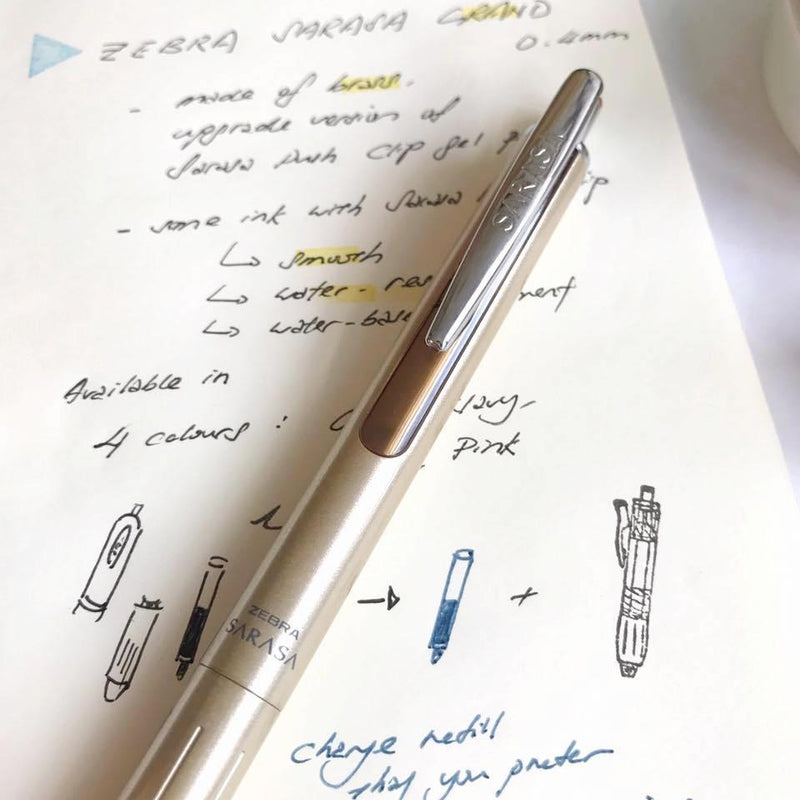 ZEBRA SARASA GRAND
0.4mm
- made of brass.
upgrade version of
Sarasa Push Clip gel
- same ink with Sarasa
↳ smooth
↳ water-
↳ water-base
Available in
4 colours :
Pink
SARASA
ZEBRA
SARASA
→ +
change refill
that you prefer